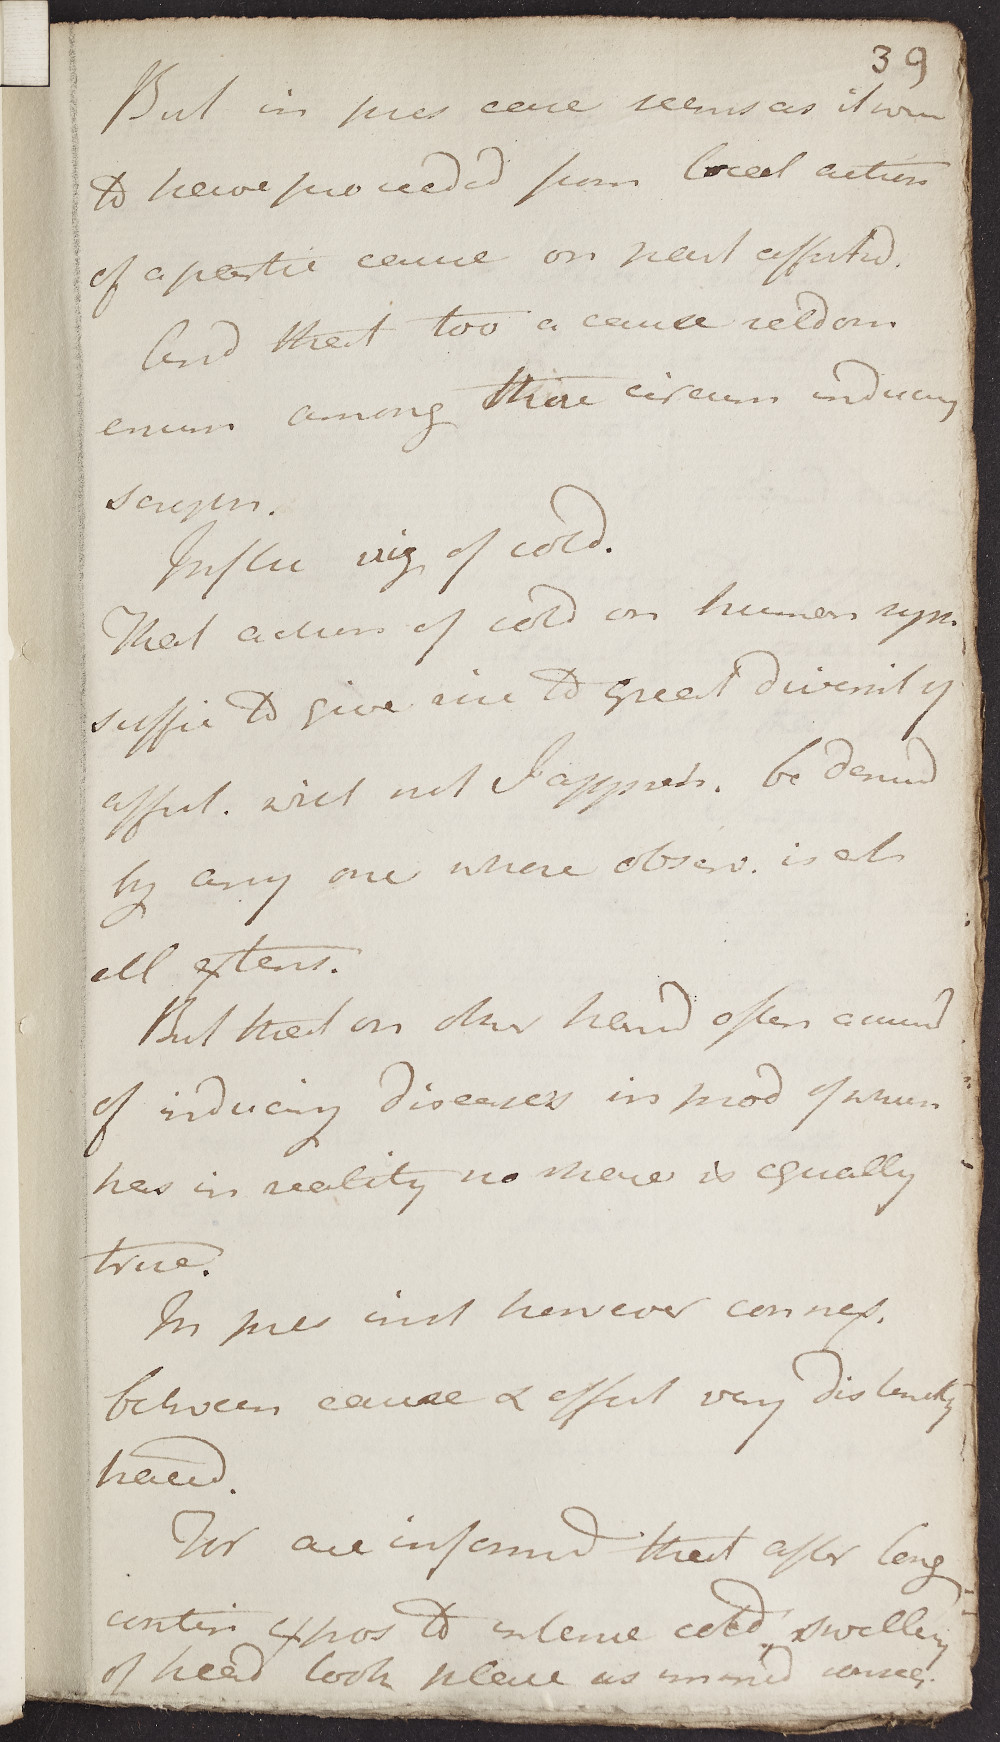 39
But in pres case seems as it were
to have proceeded from local action
of a partic cause on part affected.
And that too a cause seldom
enum among those circum inducing
scrypn.
Influ viz of cold.
That action of cold on human sysm
suffic to give rise to great diversity
affect. will not I appreh. be denied
by any one whose observ. is at
all extens.
But that on other hand often accused
of inducing diseases in prod of whm
has in reality no share is equally
true.
In pres inst however connex.
between cause & effect very distinctly
traced.
For are informd that after long
contin expos to intense cold, swelling
of head took place as immed conseq.